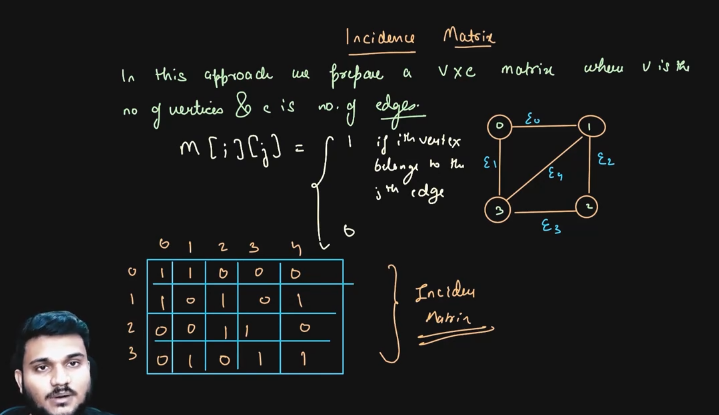 Incidence Matrix
In this approach we prepare a vxe matrix where v is the
no of vertices & e is no. of edges.
M[i][j] =
1 if ith vertex
belongs to the
jth edge
0
0 1 2 3
ε0 ε1 ε2 ε3 ε4
0 1 2 3 4
0 1 1 0 0 0
1 1 0 1 0 1
2 0 0 1 1 0
3 0 1 0 1 1
Matrix